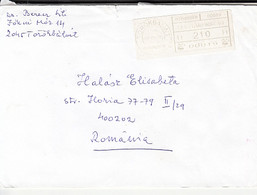 Jókai Mór u
2045 Törökbálint
210
Halász Elisabeta
str. Horia 77-79 II/29
400202
România